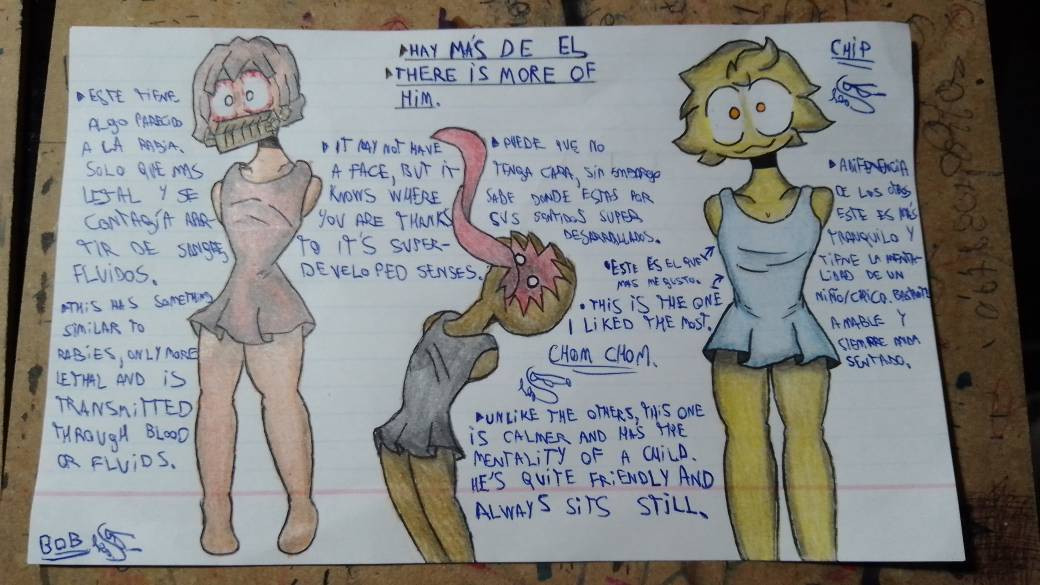 ▶HAY MÁS DE EL
▶THERE IS MORE OF
HIM.
▶ESTE TIENE
ALGO PARECIDO
A LA RABIA.
SOLO QUE MAS
LETAL Y SE
CONTAGÍA APAR-
TIR DE SANGRE
FLUIDOS.
▶THIS HAS SOMETHING
SIMILAR TO
RABIES, ONLY MORE
LETHAL AND IS
TRANSMITTED
THROUGH BLOOD
OR FLUIDS.
BOB
▶IT MAY NOT HAVE
A FACE, BUT IT
KNOWS WHERE
YOU ARE THANKS
TO IT'S SUPER-
DEVELOPED SENSES.
▶PUEDE QUE NO
TENGA CARA, SIN EMBARGO
SABE DONDE ESTAS POR
SUS SENTIDOS SUPER
DESARROLLADOS.
CHOM CHOM.
•ESTE ES EL QUE
MAS ME GUSTO.
•THIS IS THE ONE
I LIKED THE MOST.
▶UNLIKE THE OTHERS, THIS ONE
IS CALMER AND HAS THE
MENTALITY OF A CHILD.
HE'S QUITE FRIENDLY AND
ALWAYS SITS STILL.
CHIP
DE LOS
ESTE ES MÁS
TRANQUILO Y
TIENE LA MENTA-
LIDAD DE UN
NIÑO/CHICO. BASTANTE
AMABLE Y
SIEMPRE
SENTADO.